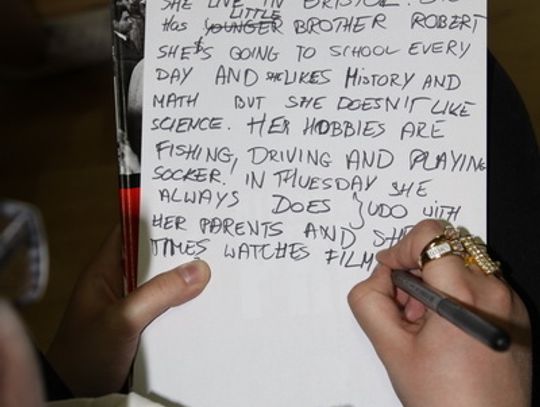 SHE LIVE IN BRISTOL.
LITTLE
HAS YOUNGER BROTHER ROBERT
SHE'S GOING TO SCHOOL EVERY
DAY AND SHE LIKES HISTORY AND
MATH BUT SHE DOESN'T LIKE
SCIENCE. HER HOBBIES ARE
FISHING, DRIVING AND PLAYING
SOCKER. IN THUESDAY SHE
ALWAYS DOES JUDO WITH
HER PARENTS AND SHE
TIMES WATCHES FILM